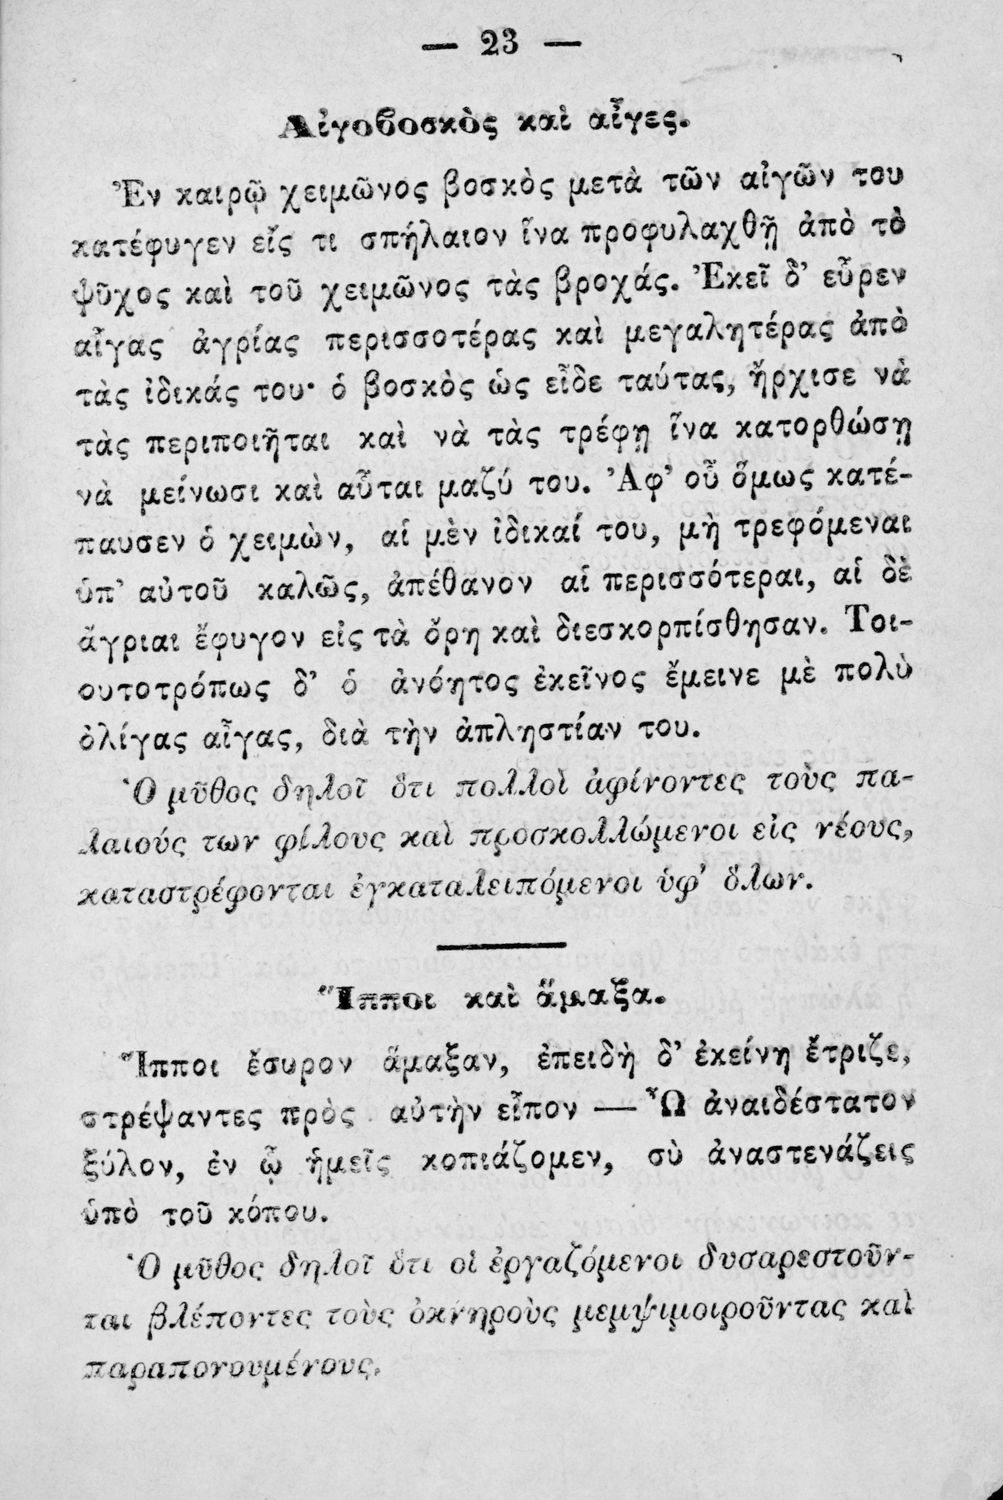 — 23 —
Αἰγοβοσκὸς καὶ αἶγες.
Ἐν καιρῷ χειμῶνος βοσκὸς μετὰ τῶν αἰγῶν του
κατέφυγεν εἴς τι σπήλαιον ἵνα προφυλαχθῇ ἀπὸ τὸ
ψῦχος καὶ τοῦ χειμῶνος τὰς βροχάς. Ἐκεῖ δ’ εὗρεν
αἶγας ἀγρίας περισσοτέρας καὶ μεγαλητέρας ἀπὸ
τὰς ἰδικάς του· ὁ βοσκὸς ὡς εἶδε ταύτας, ἤρχισε νὰ
τὰς περιποιῆται καὶ νὰ τὰς τρέφῃ ἵνα κατορθώσῃ
νὰ μείνωσι καὶ αὗται μαζύ του. Ἀφ’ οὗ ὅμως κατέ-
παυσεν ὁ χειμὼν, αἱ μὲν ἰδικαί του, μὴ τρεφόμεναι
ὑπ’ αὐτοῦ καλῶς, ἀπέθανον αἱ περισσότεραι, αἱ δὲ
ἄγριαι ἔφυγον εἰς τὰ ὄρη καὶ διεσκορπίσθησαν. Τοι-
ουτοτρόπως δ’ ὁ ἀνόητος ἐκεῖνος ἔμεινε μὲ πολὺ
ὀλίγας αἶγας, διὰ τὴν ἀπληστίαν του.
Ὁ μῦθος δηλοῖ ὅτι πολλοὶ ἀφίνοντες τοὺς πα-
λαιούς των φίλους καὶ προσκολλώμενοι εἰς νέους,
καταστρέφονται ἐγκαταλειπόμενοι ὑφ’ ὅλων.
Ἵπποι καὶ ἅμαξα.
Ἵπποι ἔσυρον ἅμαξαν, ἐπειδὴ δ’ ἐκείνη ἔτριζε,
στρέψαντες πρὸς αὐτὴν εἶπον — Ὦ ἀναιδέστατον
ξύλον, ἐν ᾧ ἡμεῖς κοπιάζομεν, σὺ ἀναστενάζεις
ὑπὸ τοῦ κόπου.
Ὁ μῦθος δηλοῖ ὅτι οἱ ἐργαζόμενοι δυσαρεστοῦν-
ται βλέποντες τοὺς ὀκνηροὺς μεμψιμοιροῦντας καὶ
παραπονουμένους.